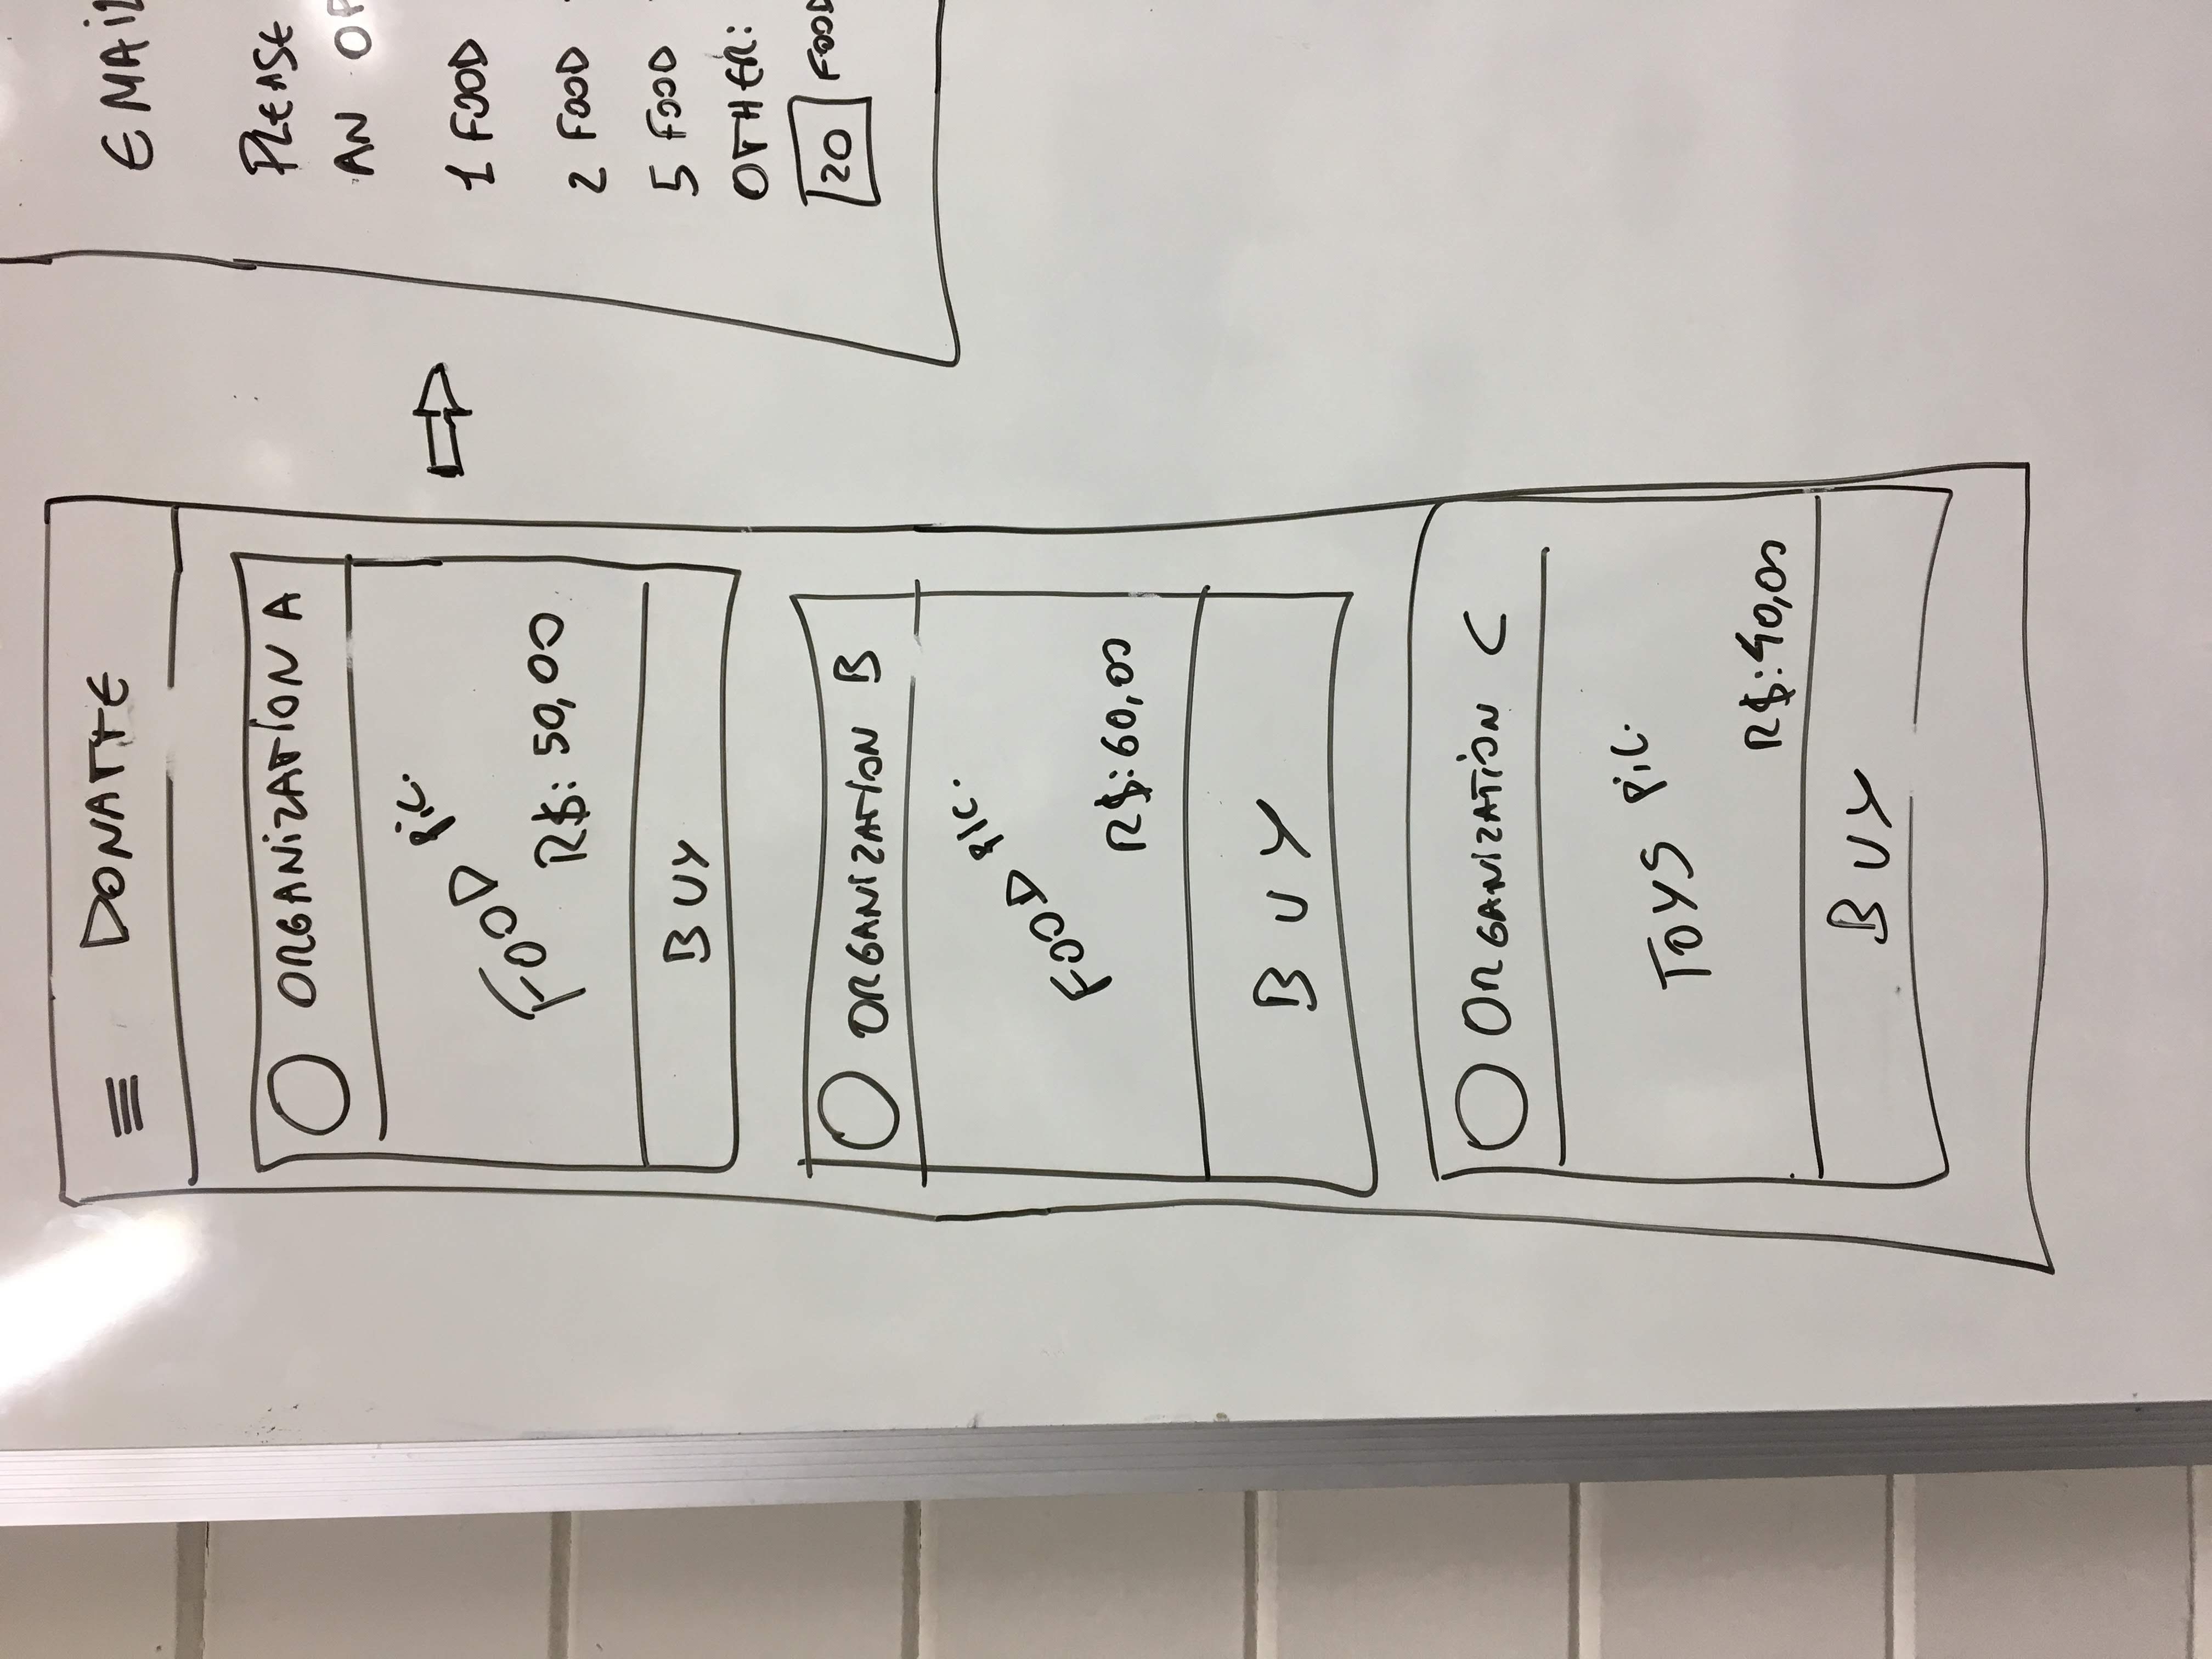 DONATTE
ORGANIZATION A
FOOD PIC.
R$: 50,00
BUY
ORGANIZATION B
FOOD PIC.
R$: 60,00
BUY
ORGANIZATION C
TOYS PIC.
R$: 40,00
BUY
EMAIL
PLEASE
AN OP
1 FOOD
2 FOOD
5 FOOD
OTHER:
20 FOOD